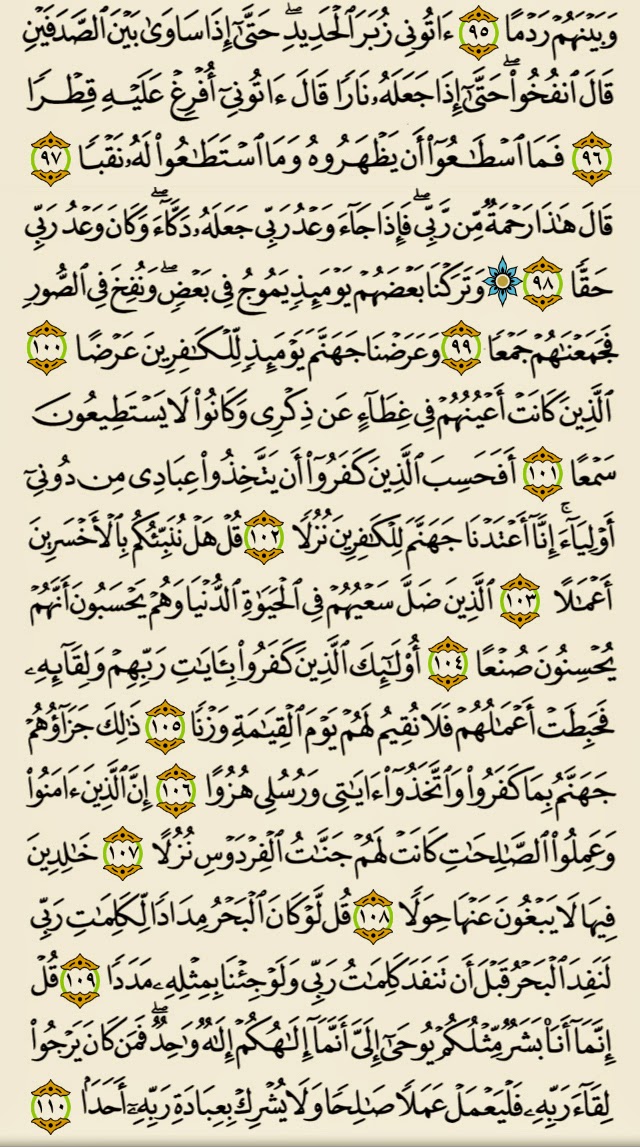 وَبَيْنَهُمْ رَدْمًا ٩٥ ءَاتُونِى زُبَرَ ٱلْحَدِيدِ ۖ حَتَّىٰٓ إِذَا سَاوَىٰ بَيْنَ ٱلصَّدَفَيْنِ
قَالَ ٱنفُخُوا۟ ۖ حَتَّىٰٓ إِذَا جَعَلَهُۥ نَارًا قَالَ ءَاتُونِىٓ أُفْرِغْ عَلَيْهِ قِطْرًا
٩٦ فَمَا ٱسْطَـٰعُوٓا۟ أَن يَظْهَرُوهُ وَمَا ٱسْتَطَـٰعُوا۟ لَهُۥ نَقْبًا ٩٧
قَالَ هَـٰذَا رَحْمَةٌ مِّن رَّبِّى ۖ فَإِذَا جَآءَ وَعْدُ رَبِّى جَعَلَهُۥ دَكَّآءَ ۖ وَكَانَ وَعْدُ رَبِّى
حَقًّا ٩٨ وَتَرَكْنَا بَعْضَهُمْ يَوْمَئِذٍ يَمُوجُ فِى بَعْضٍ ۖ وَنُفِخَ فِى ٱلصُّورِ
فَجَمَعْنَـٰهُمْ جَمْعًا ٩٩ وَعَرَضْنَا جَهَنَّمَ يَوْمَئِذٍ لِّلْكَـٰفِرِينَ عَرْضًا ١٠٠
ٱلَّذِينَ كَانَتْ أَعْيُنُهُمْ فِى غِطَآءٍ عَن ذِكْرِى وَكَانُوا۟ لَا يَسْتَطِيعُونَ
سَمْعًا ١٠١ أَفَحَسِبَ ٱلَّذِينَ كَفَرُوٓا۟ أَن يَتَّخِذُوا۟ عِبَادِى مِن دُونِىٓ
أَوْلِيَآءَ ۚ إِنَّآ أَعْتَدْنَا جَهَنَّمَ لِلْكَـٰفِرِينَ نُزُلًا ١٠٢ قُلْ هَلْ نُنَبِّئُكُم بِٱلْأَخْسَرِينَ
أَعْمَـٰلًا ١٠٣ ٱلَّذِينَ ضَلَّ سَعْيُهُمْ فِى ٱلْحَيَوٰةِ ٱلدُّنْيَا وَهُمْ يَحْسَبُونَ أَنَّهُمْ
يُحْسِنُونَ صُنْعًا ١٠٤ أُو۟لَـٰٓئِكَ ٱلَّذِينَ كَفَرُوا۟ بِـَٔايَـٰتِ رَبِّهِمْ وَلِقَآئِهِۦ
فَحَبِطَتْ أَعْمَـٰلُهُمْ فَلَا نُقِيمُ لَهُمْ يَوْمَ ٱلْقِيَـٰمَةِ وَزْنًا ١٠٥ ذَٰلِكَ جَزَآؤُهُمْ
جَهَنَّمُ بِمَا كَفَرُوا۟ وَٱتَّخَذُوٓا۟ ءَايَـٰتِى وَرُسُلِى هُزُوًا ١٠٦ إِنَّ ٱلَّذِينَ ءَامَنُوا۟
وَعَمِلُوا۟ ٱلصَّـٰلِحَـٰتِ كَانَتْ لَهُمْ جَنَّـٰتُ ٱلْفِرْدَوْسِ نُزُلًا ١٠٧ خَـٰلِدِينَ
فِيهَا لَا يَبْغُونَ عَنْهَا حِوَلًا ١٠٨ قُل لَّوْ كَانَ ٱلْبَحْرُ مِدَادًا لِّكَلِمَـٰتِ رَبِّى
لَنَفِدَ ٱلْبَحْرُ قَبْلَ أَن تَنفَدَ كَلِمَـٰتُ رَبِّى وَلَوْ جِئْنَا بِمِثْلِهِۦ مَدَدًا ١٠٩ قُلْ
إِنَّمَآ أَنَا۠ بَشَرٌ مِّثْلُكُمْ يُوحَىٰٓ إِلَىَّ أَنَّمَآ إِلَـٰهُكُمْ إِلَـٰهٌ وَٰحِدٌ ۖ فَمَن كَانَ يَرْجُوا۟
لِقَآءَ رَبِّهِۦ فَلْيَعْمَلْ عَمَلًا صَـٰلِحًا وَلَا يُشْرِكْ بِعِبَادَةِ رَبِّهِۦٓ أَحَدًۢا ١١٠